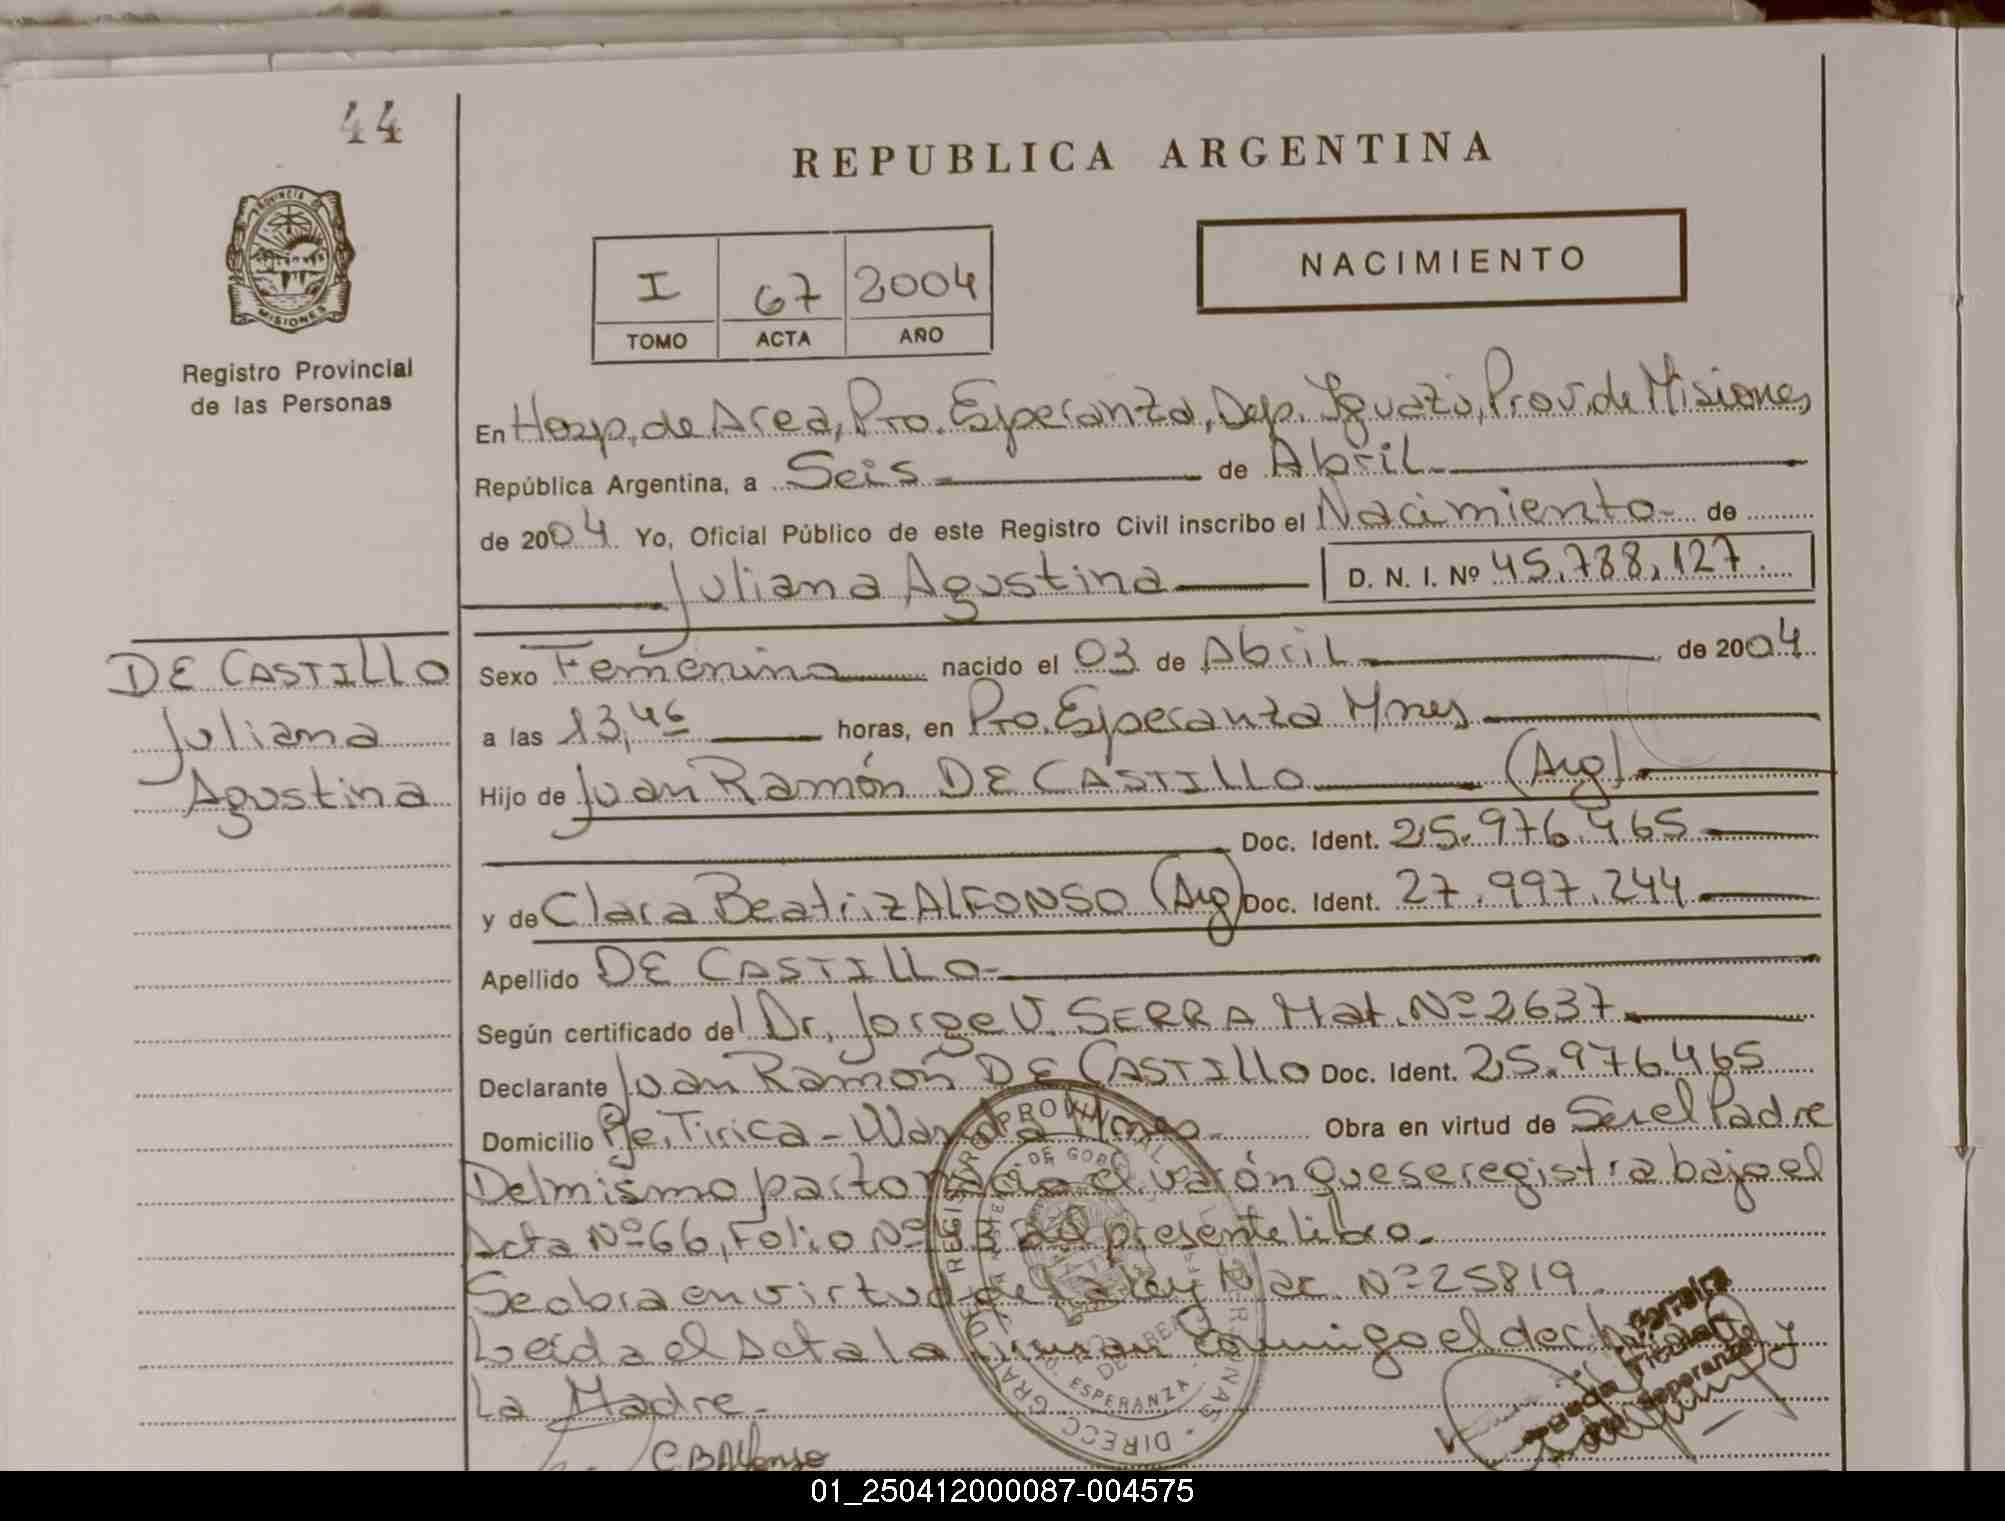 44
REPUBLICA ARGENTINA
PROVINCIA DE
MISIONES
Registro Provincial
de las Personas
I 67 2004
TOMO ACTA AÑO
NACIMIENTO
En Hosp. de Area, Pto. Esperanza, Dep. Iguazú, Prov. de Misiones
República Argentina, a Seis de Abril
de 2004 Yo, Oficial Público de este Registro Civil inscribo el Nacimiento de
Juliana Agustina D. N. I. Nº 45.788.127.
DE CASTILLO
Juliana
Agustina
Sexo Femenino nacido el 03 de Abril de 2004
a las 13,46 horas, en Pto. Esperanza Mnes
Hijo de Juan Ramón DE CASTILLO (Arg)
Doc. Ident. 25.976.465
y de Clara Beatriz ALFONSO (Arg) Doc. Ident. 27.997.244
Apellido DE CASTILLO
Según certificado del Dr. Jorge V. SERRA Mat. Nº 2637
Declarante Juan Ramón DE CASTILLO Doc. Ident. 25.976.465
Domicilio Pje. Tirica - Wanda Mnes Obra en virtud de Ser el Padre
Del mismo parto nacio el varón que se registra bajo el
Acta Nº 66, Folio Nº del presente libro.
Se obra en virtud de la ley Nac. Nº 25819.
Leida el Acta la firman Conmigo el declarante y
La Madre.
C B Alfonso
01_250412000087-004575